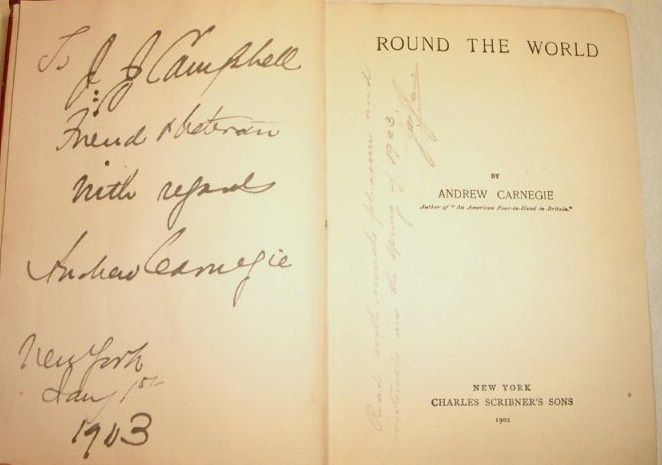 To
J. J. Campbell
Friend & Veteran
with regards
Andrew Carnegie
New York
Jany 1st
1903
ROUND THE WORLD
BY
ANDREW CARNEGIE
Author of "An American Four-in-Hand in Britain."
NEW YORK
CHARLES SCRIBNER'S SONS
1902
Read with much pleasure and
in the Spring of 1903